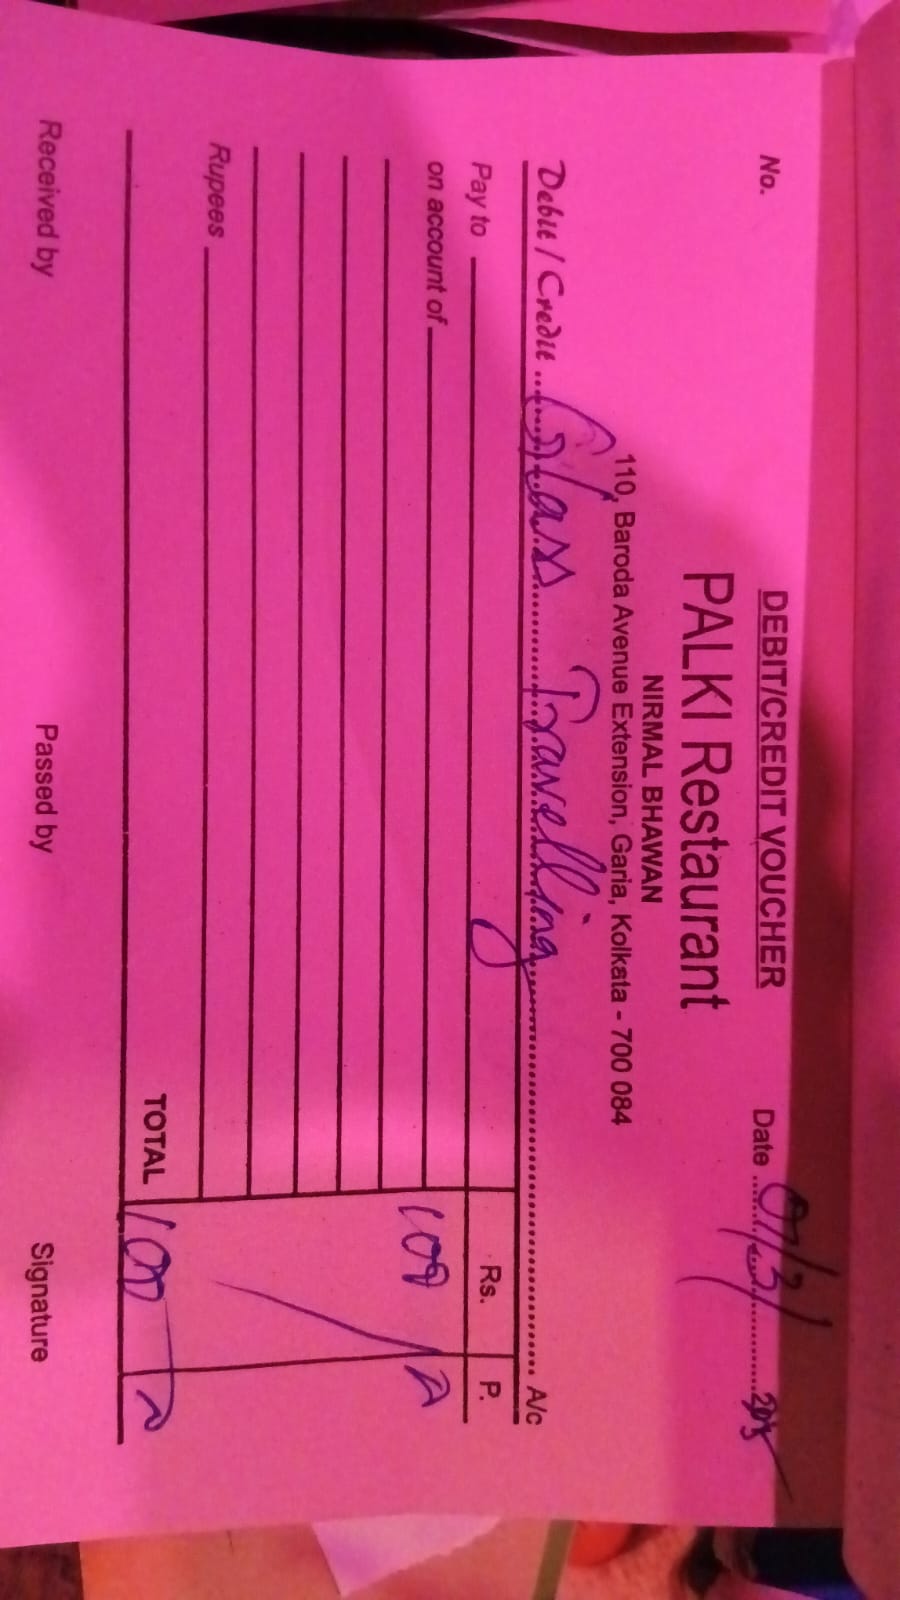 DEBIT/CREDIT VOUCHER
No. Date 01/3/
PALKI Restaurant
NIRMAL BHAWAN
110, Baroda Avenue Extension, Garia, Kolkata - 700 084
Debit / Credit Glass Travelling A/c
Rs. P.
Pay to
on account of 100
Rupees
TOTAL 100
Received by Passed by Signature